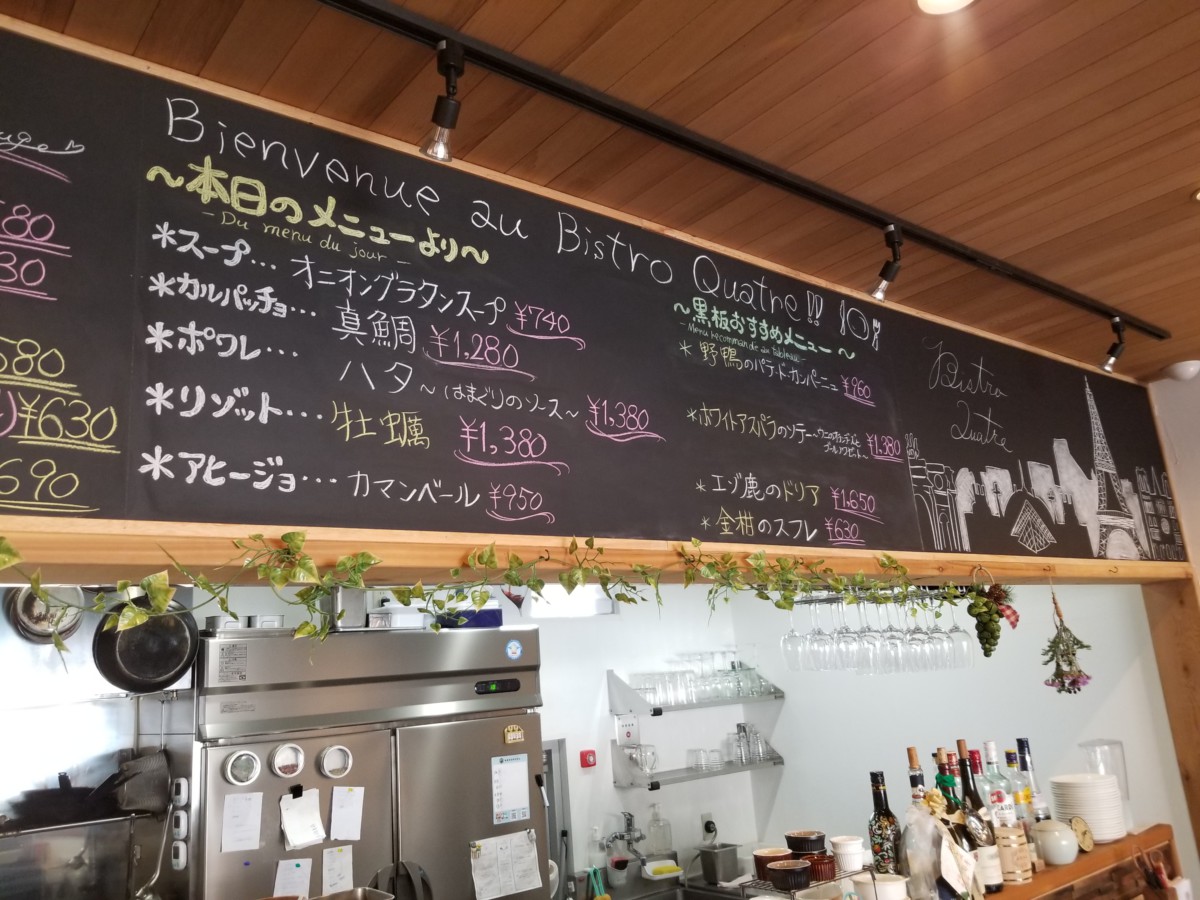 580
30
580
¥630
690
Bienvenue au Bistro Quatre!!
〜本日のメニューより〜
- Du menu du jour -
*スープ… オニオングラタンスープ ¥740
*カルパッチョ… 真鯛 ¥1,280
*ポワレ… ハタ〜はまぐりのソース〜 ¥1,380
*リゾット… 牡蠣 ¥1,380
*アヒージョ… カマンベール ¥950
〜黒板おすすめメニュー〜
*野鴨のパテ・ド・カンパーニュ ¥960
*ホワイトアスパラのソテー ¥1,380
*エゾ鹿のドリア ¥1,650
*金柑のスフレ ¥630
Bistro
Quatre